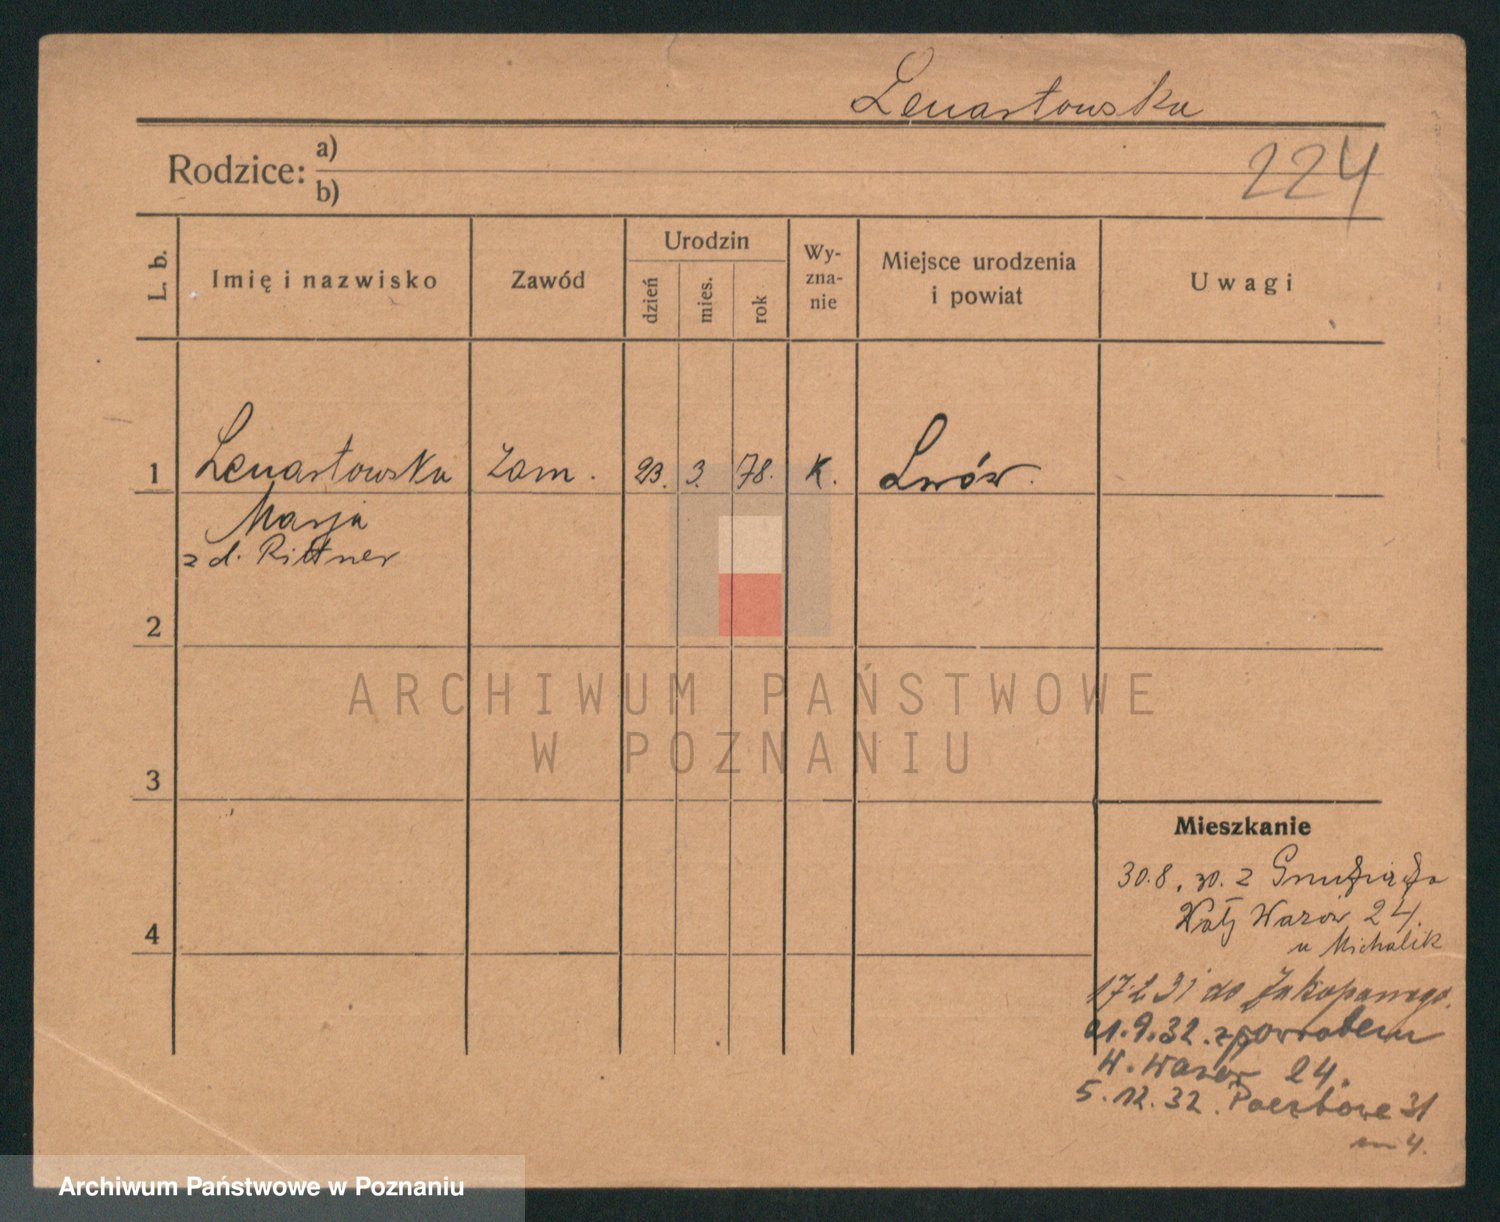 Lenartowska
224
Rodzice: a)
b)
L. b.
Imię i nazwisko
Zawód
Urodzin
dzień
mies.
rok
Wy-
zna-
nie
Miejsce urodzenia
i powiat
Uwagi
1 Lenartowska Zam. 23. 3. 78. K. Lwów.
Marja
z d. Rittner
2
3
4
ARCHIWUM PAŃSTWOWE
W POZNANIU
Mieszkanie
30.8.30. z
Wały Wazów 24.
u Michalik
17.2.31 do Zakopanego.
21.9.32. z powrotem
W. Wazów 24.
5.12.32. Pocztowe 31
m 4.
Archiwum Państwowe w Poznaniu